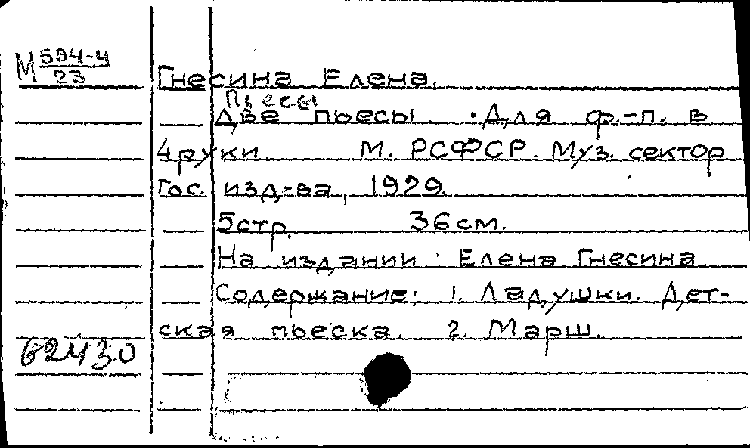 М 594-4
23
Гнесина Елена.
Пьесы
Две пьесы. Для ф.-п. в
4 руки. М. РСФСР. Муз. сектор
Гос. изд-ва, 1929.
5стр. 36см.
На издании: Елена Гнесина
Содержание: 1. Ладушки. Дет-
ская пьеска. 2. Марш.
62430